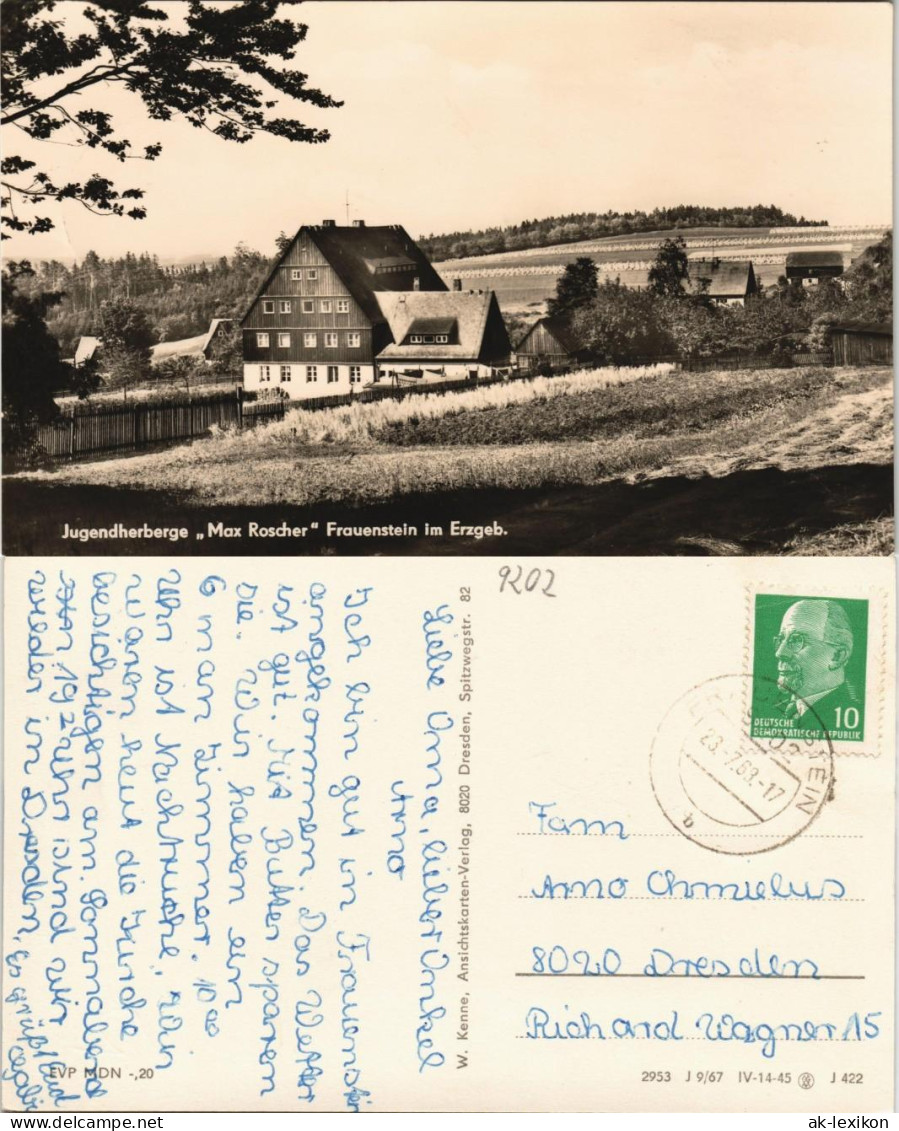 Jugendherberge „Max Roscher“ Frauenstein im Erzgeb.
9202
Liebe Oma, lieber Onkel
Arno
Ich bin gut in Frauenstein
angekommen. Das Wetter
ist gut. Mit Butter sparen
die. Wir haben ein
6 mann Zimmer. 10 00
Uhr ist Nachtruhe, Wir
waren heut die Kirche
besichtigen am. Sonnabend
19 uhr sind wir
wieder in Dresden, Es grüßt
W. Kenne, Ansichtskarten-Verlag, 8020 Dresden, Spitzwegstr. 82
DEUTSCHE
DEMOKRATISCHE REPUBLIK
10
23.-7.68.-17
b
Fam
Arno Chmielus
8020 Dresden
Richard Wagner 15
EVP MDN -,20
2953 J 9/67 IV-14-45 J 422
hippostcard.com
ak-lexikon